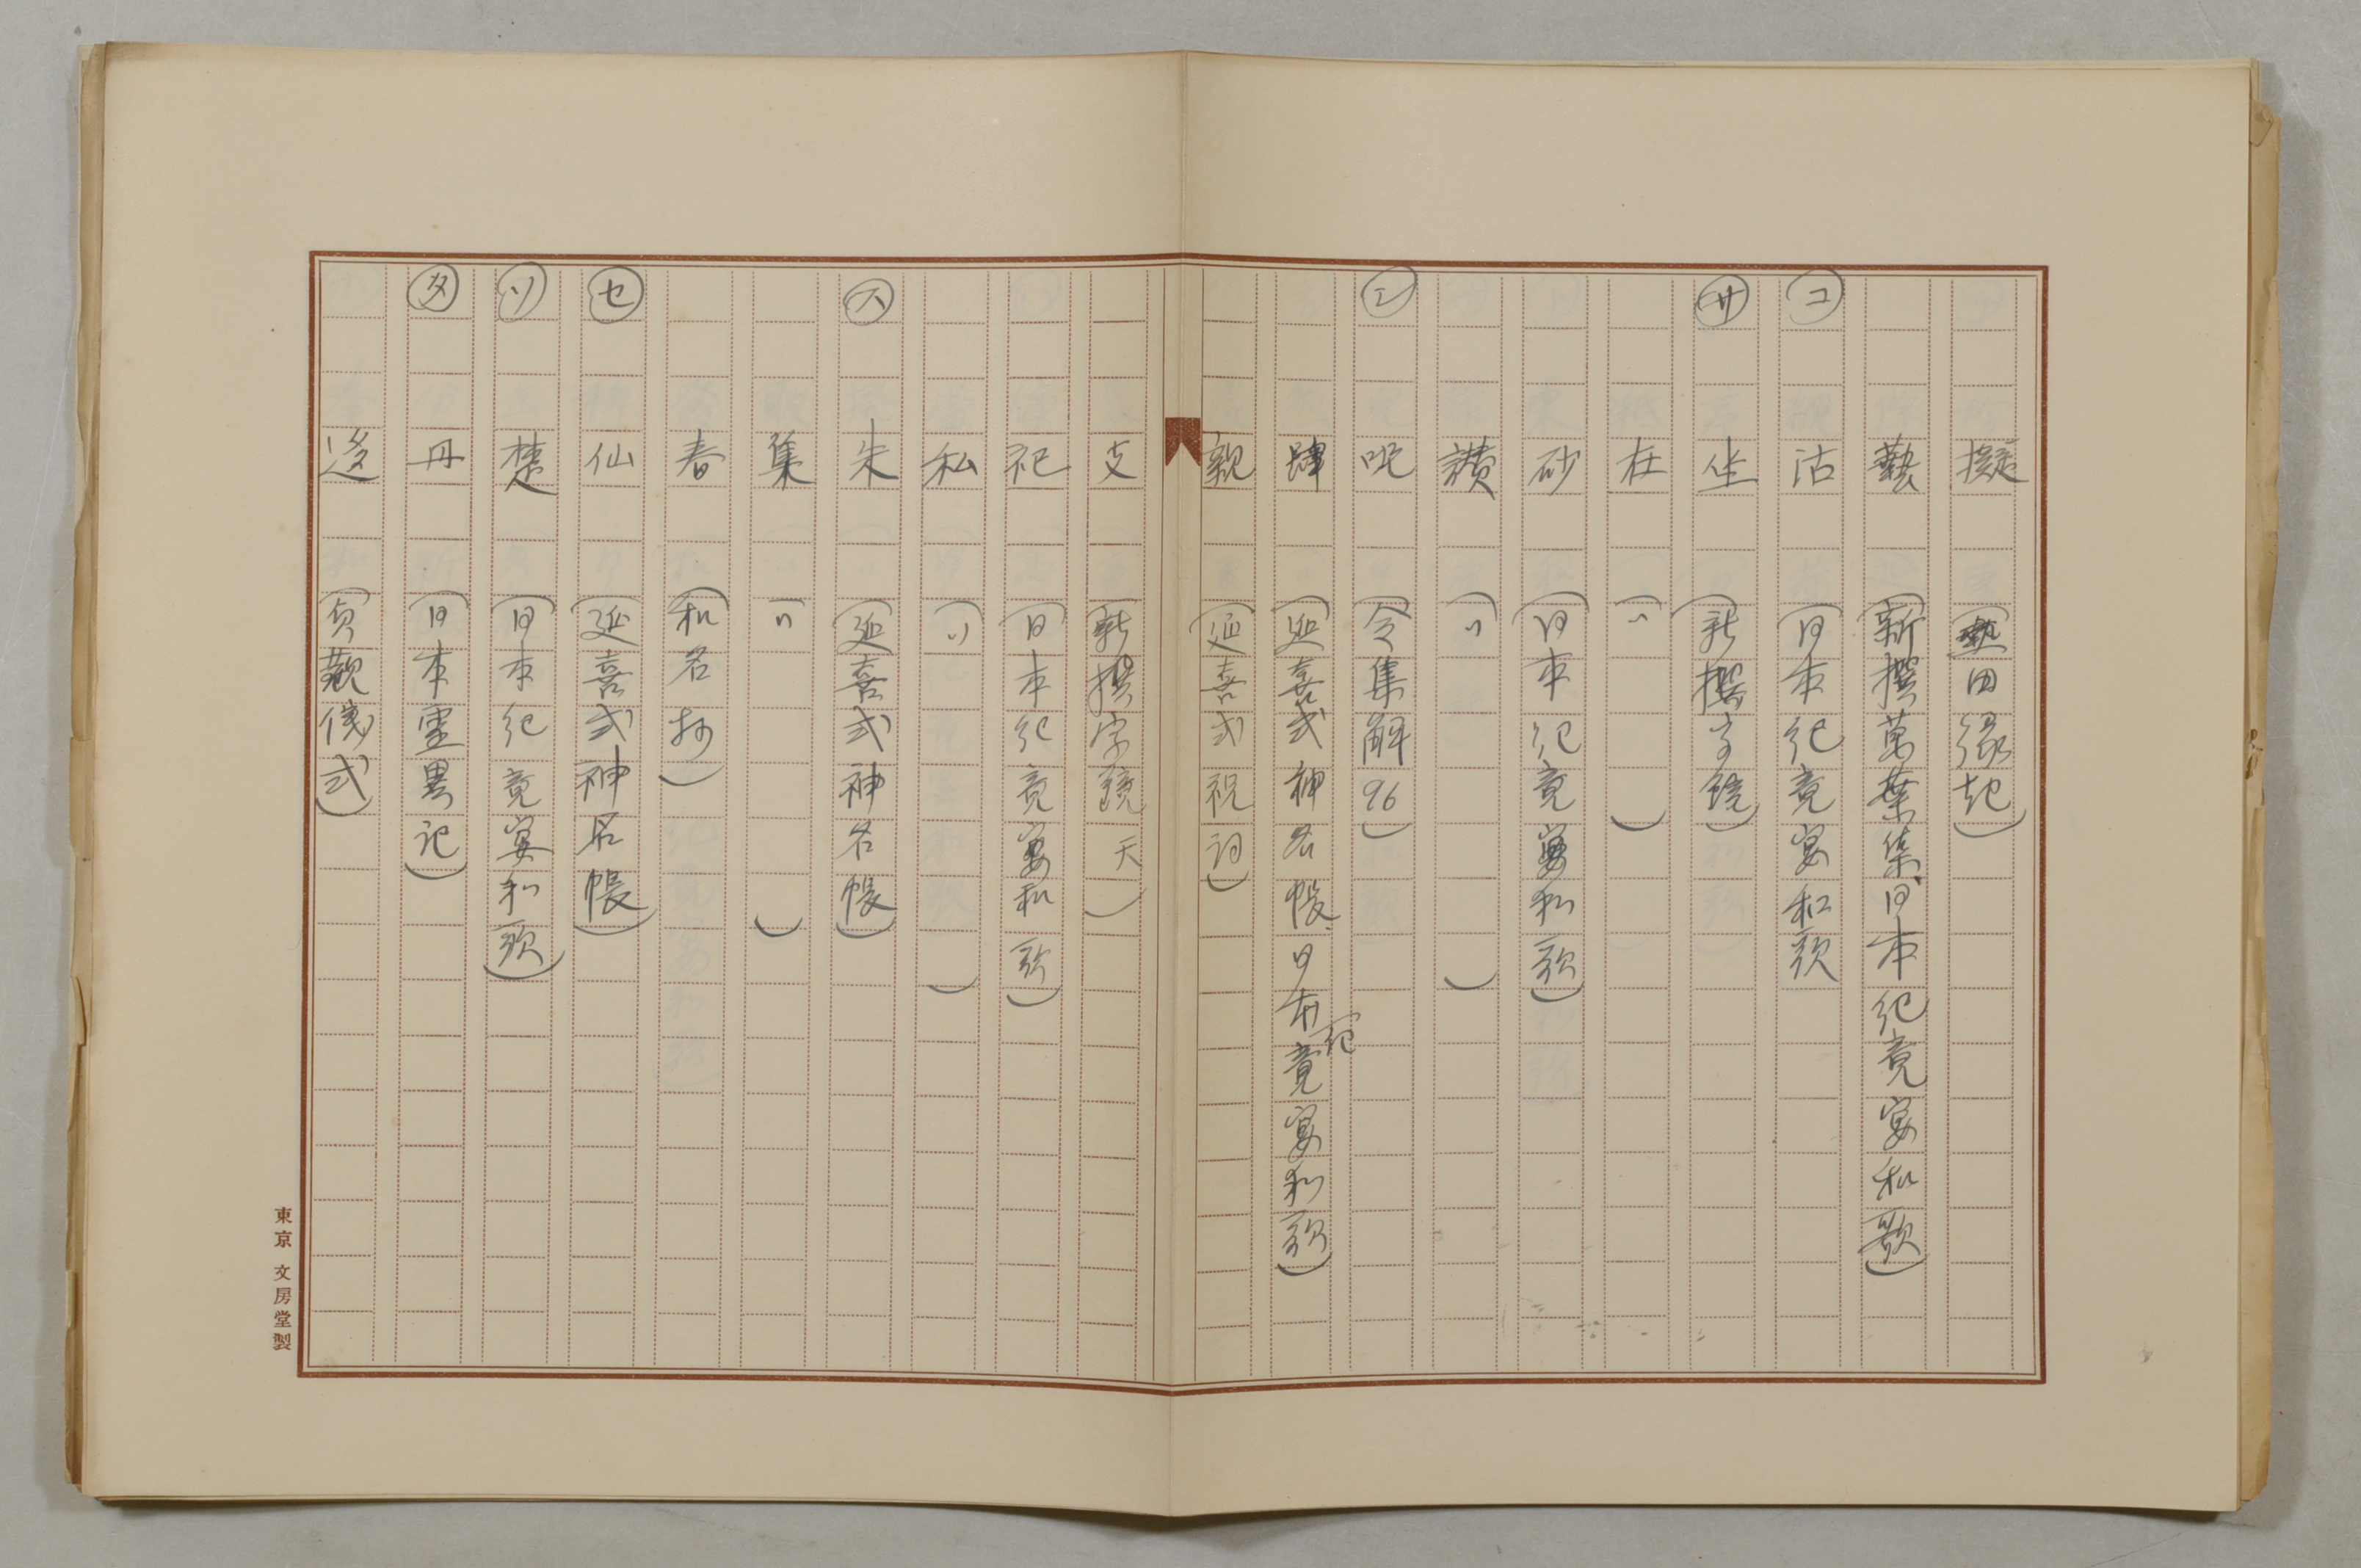 擬 (熱田縁起)
藝 (新撰萬葉集、日本紀竟宴和歌)
㋙ 沽 (日本紀竟宴和歌
㋚ 坐 (新撰字鏡)
在 (〃)
砂 (日本紀竟宴和歌)
讃 (〃)
㋛ 呪 (令集解96)
肆 (延喜式神名帳、日本紀竟宴和歌)
親 (延喜式祝詞)
支 (新撰字鏡 天)
祀 (日本紀竟宴和歌)
私 (〃)
㋜ 朱 (延喜式神名帳)
集 (〃)
春 (和名抄)
㋝ 仙 (延喜式神名帳)
㋞ 楚 (日本紀竟宴和歌)
㋟ 丹 (日本霊異記)
逢 (貞観儀式)
東京 文房堂製